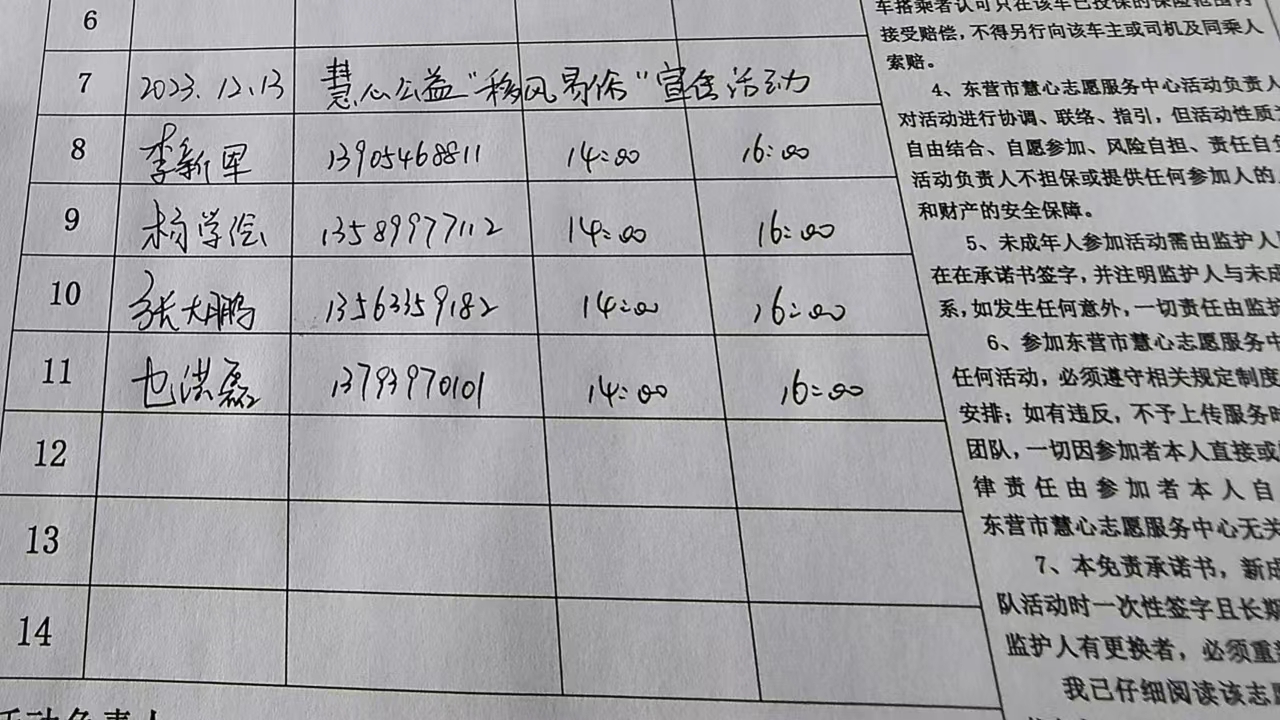 6
7 2023.12.13 慧心公益"移风易俗"宣传活动
8 李新军 13905468811 14:00 16:00
9 杨学绘 13589977112 14:00 16:00
10 张大鹏 13563359182 14:00 16:00
11 洪磊 13793970101 14:00 16:00
12
13
14
车搭乘者认可只在该车已投保的保险范围内
接受赔偿,不得另行向该车主或司机及同乘人
索赔。
4、东营市慧心志愿服务中心活动负责人
对活动进行协调、联络、指引,但活动性质
自由结合、自愿参加、风险自担、责任自负
活动负责人不担保或提供任何参加人的
和财产的安全保障。
5、未成年人参加活动需由监护人
在在承诺书签字,并注明监护人与未成
系,如发生任何意外,一切责任由监护
6、参加东营市慧心志愿服务中
任何活动,必须遵守相关规定制度
安排;如有违反,不予上传服务时
团队,一切因参加者本人直接或
律责任由参加者本人自
东营市慧心志愿服务中心无关
7、本免责承诺书,新成
队活动时一次性签字且长期
监护人有更换者,必须重新
我已仔细阅读该志愿
活动负责人